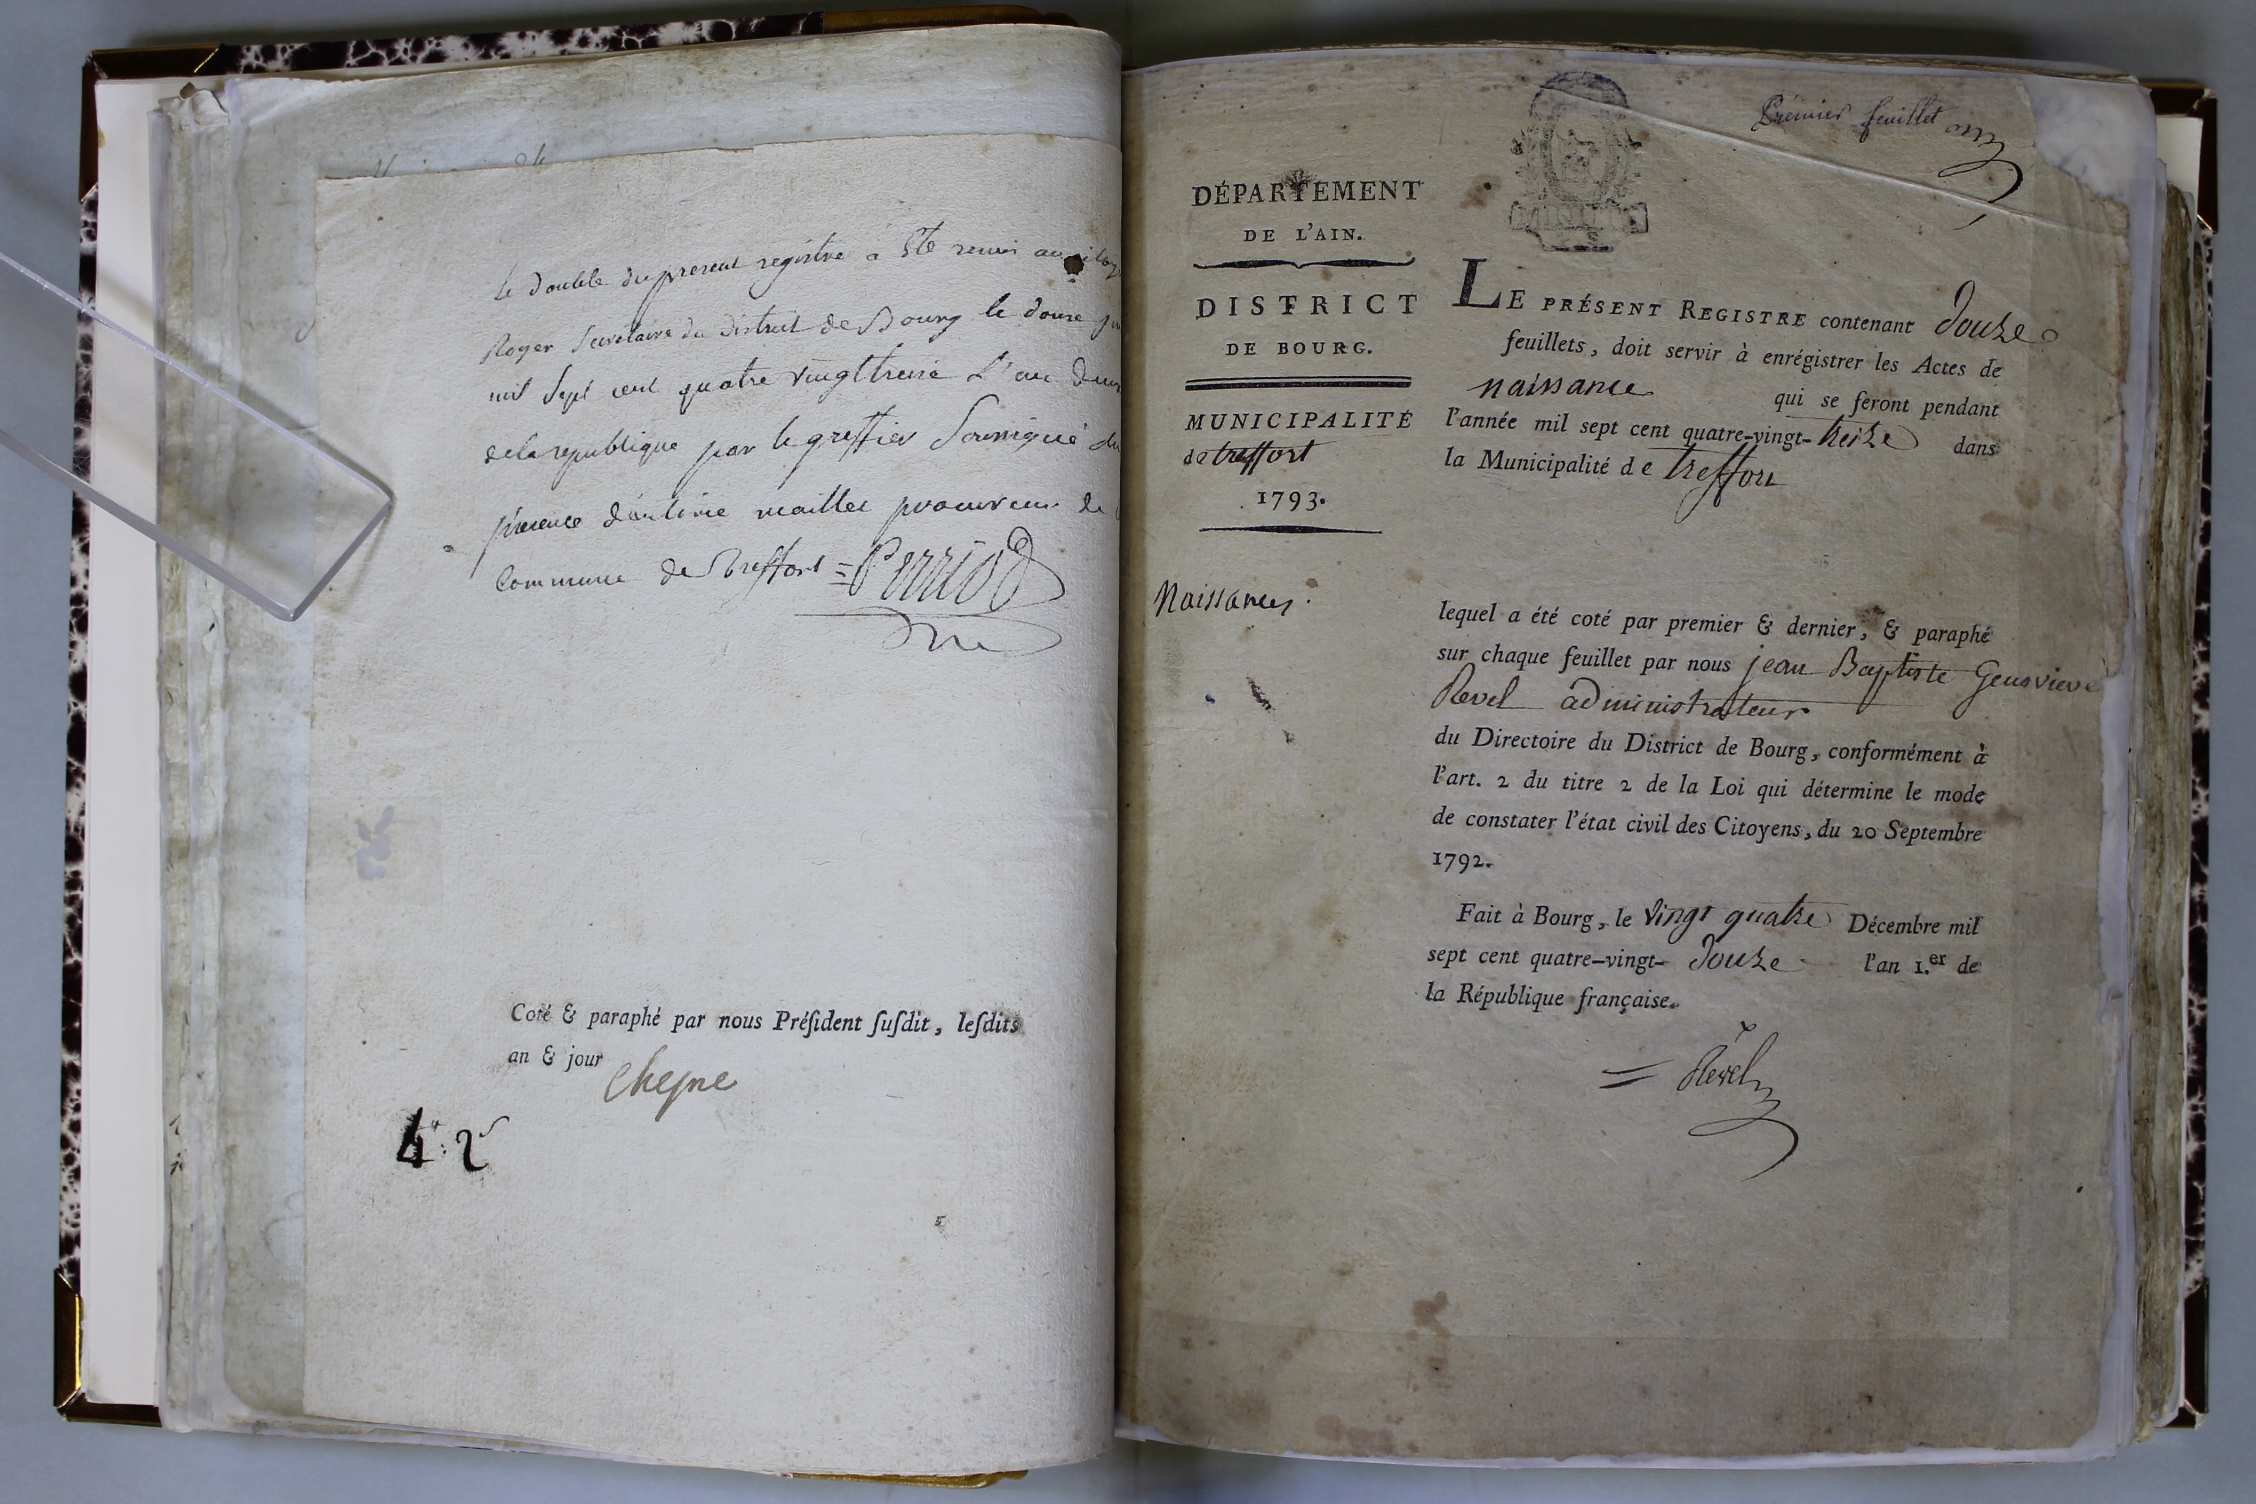 le double du present registre a été remis au
Roger Secrétaire du district de Bourg le douze
mil sept cent quatre vingt treize L'an deux
de la republique par le greffier soussigné
presence d'antoine maillet procureur de
Commune de treffort = Perriod
Coté & paraphé par nous Préſident ſuſdit, leſdits
an & jour
Chesne
5
Premier feuillet
DÉPARTEMENT
DE L'AIN.
DISTRICT
DE BOURG.
MUNICIPALITÉ
de treffort
1793.
Naissances
LE PRÉSENT REGISTRE contenant douze
feuillets, doit servir à enrégistrer les Actes de
naissance qui se feront pendant
l'année mil sept cent quatre-vingt-treize dans
la Municipalité de treffort
lequel a été coté par premier & dernier, & paraphé
sur chaque feuillet par nous jean Baptiste Genevieve
Revel administrateur
du Directoire du District de Bourg, conformément à
l'art. 2 du titre 2 de la Loi qui détermine le mode
de constater l'état civil des Citoyens, du 20 Septembre
1792.
Fait à Bourg, le vingt quatre Décembre mil
sept cent quatre-vingt-douze l'an 1.er de
la République française.
= Revel